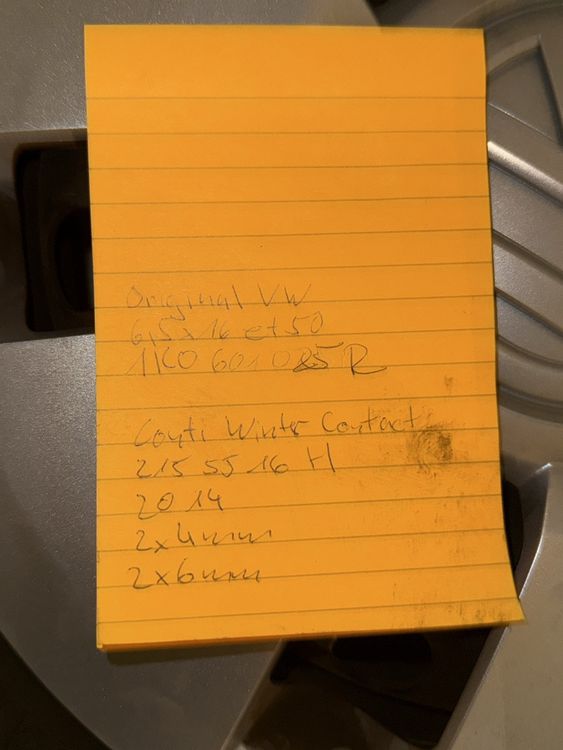 Original VW
6,5 x 16 et 50
1K0 601 025 R
Conti Winter Contact
215 55 16 H
2014
2x4mm
2x6mm